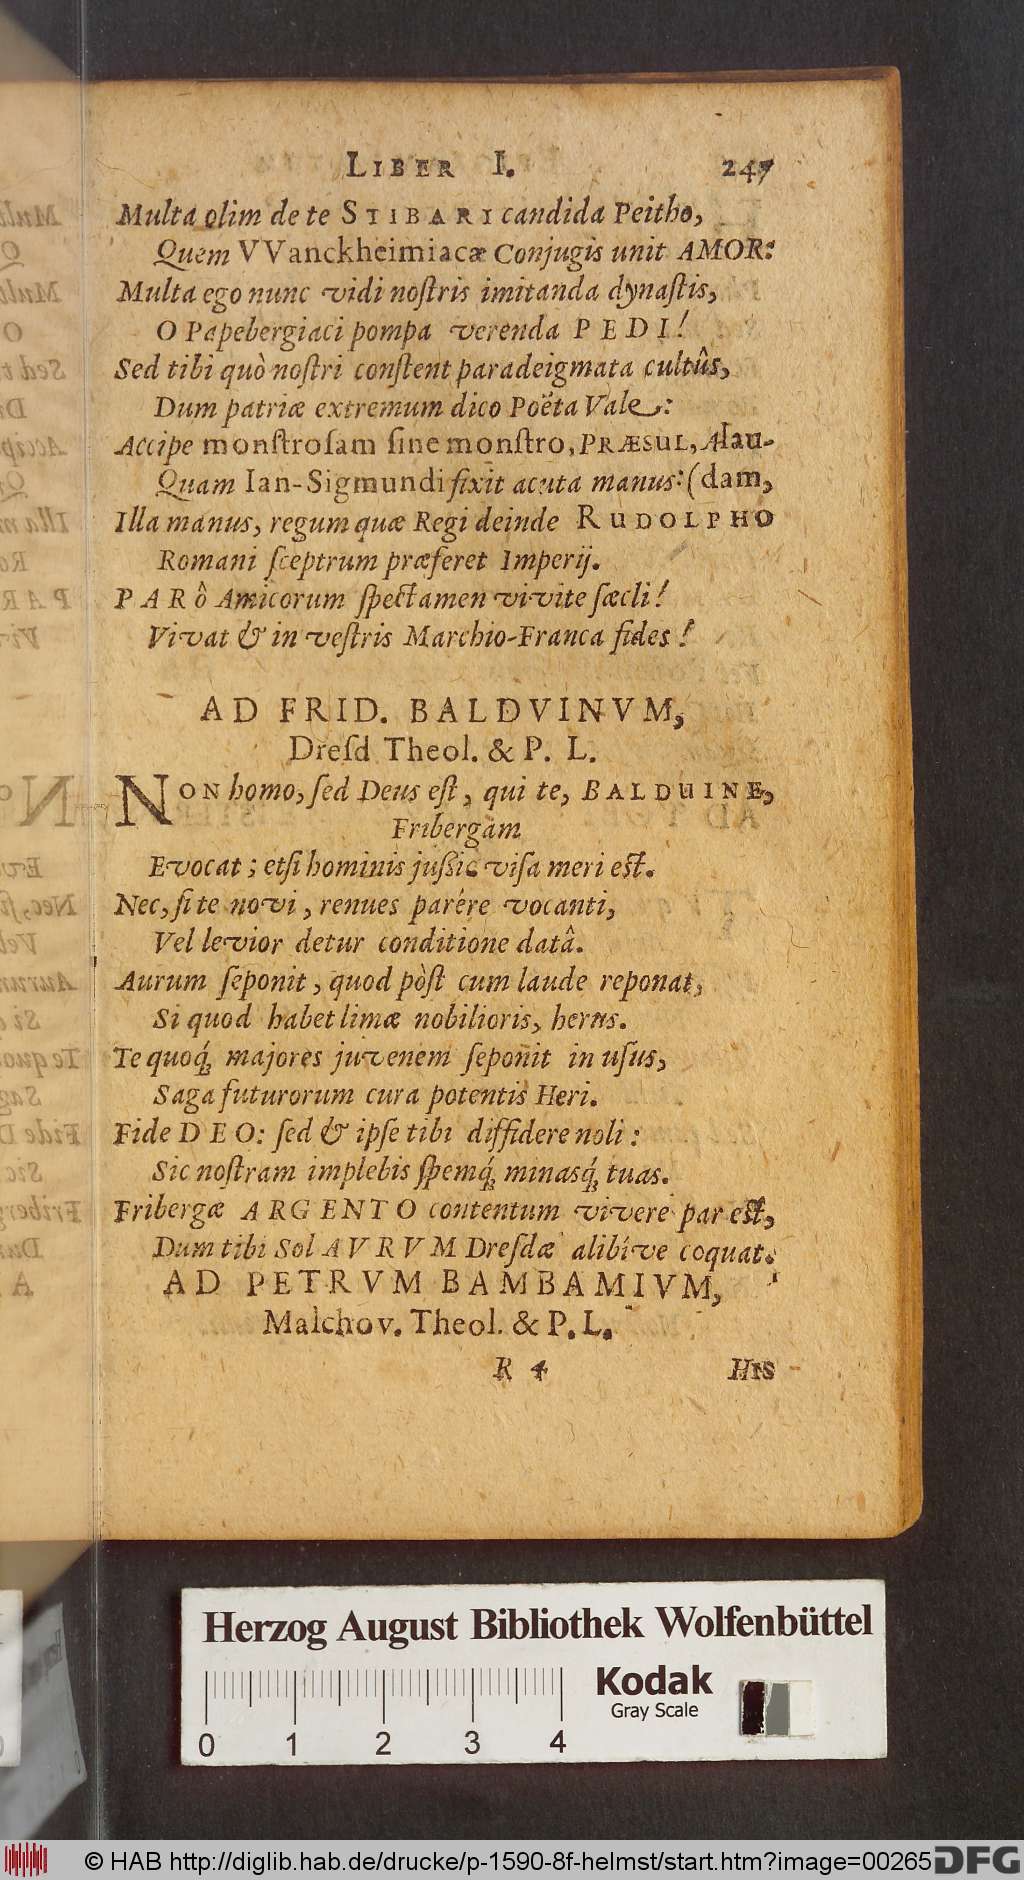 LIBER I. 247
Multa olim de te STIBARI candida Peitho,
Quem VVanckheimiacæ Conjugis unit AMOR:
Multa ego nunc vidi noſtris imitanda dynaſtis,
O Papebergiaci pompa verenda PEDI!
Sed tibi quò noſtri conſtent paradeigmata cultûs,
Dum patriæ extremum dico Poëta Vale:
Accipe monſtroſam ſine monſtro, PRÆSUL, Alau-
Quam Ian-Sigmundi fixit acuta manus: (dam,
Illa manus, regum quæ Regi deinde RUDOLPHO
Romani ſceptrum præferet Imperij.
PARô Amicorum ſpectamen vivite ſæcli!
Vivat & in veſtris Marchio-Franca fides!
AD FRID. BALDVINVM,
Dreſd Theol. & P. L.
NON homo, ſed Deus eſt, qui te, BALDUINE,
Fribergam
Evocat; etſi hominis juſſio viſa meri eſt.
Nec, ſi te novi, renues parére vocanti,
Vel levior detur conditione datâ.
Aurum ſeponit, quod pòſt cum laude reponat,
Si quod habet limæ nobilioris, herus.
Te quoq́; majores juvenem ſeponit in uſus,
Saga futurorum cura potentis Heri.
Fide DEO: ſed & ipſe tibi diffidere noli:
Sic noſtram implebis ſpemq́; minasq́; tuas.
Fribergæ ARGENTO contentum vivere par eſt,
Dum tibi Sol AVRVM Dreſdæ alibíve coquat.
AD PETRVM BAMBAMIVM,
Malchov. Theol. & P. L.
R 4 HIS
Herzog August Bibliothek Wolfenbüttel
Kodak
Gray Scale
0 1 2 3 4
© HAB http://diglib.hab.de/drucke/p-1590-8f-helmst/start.htm?image=00265
DFG